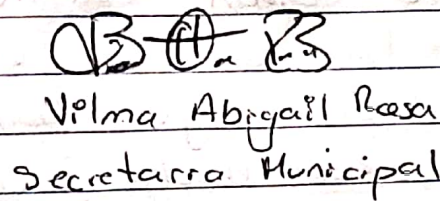 Vilma Abigail Rosa
Secretaria Municipal